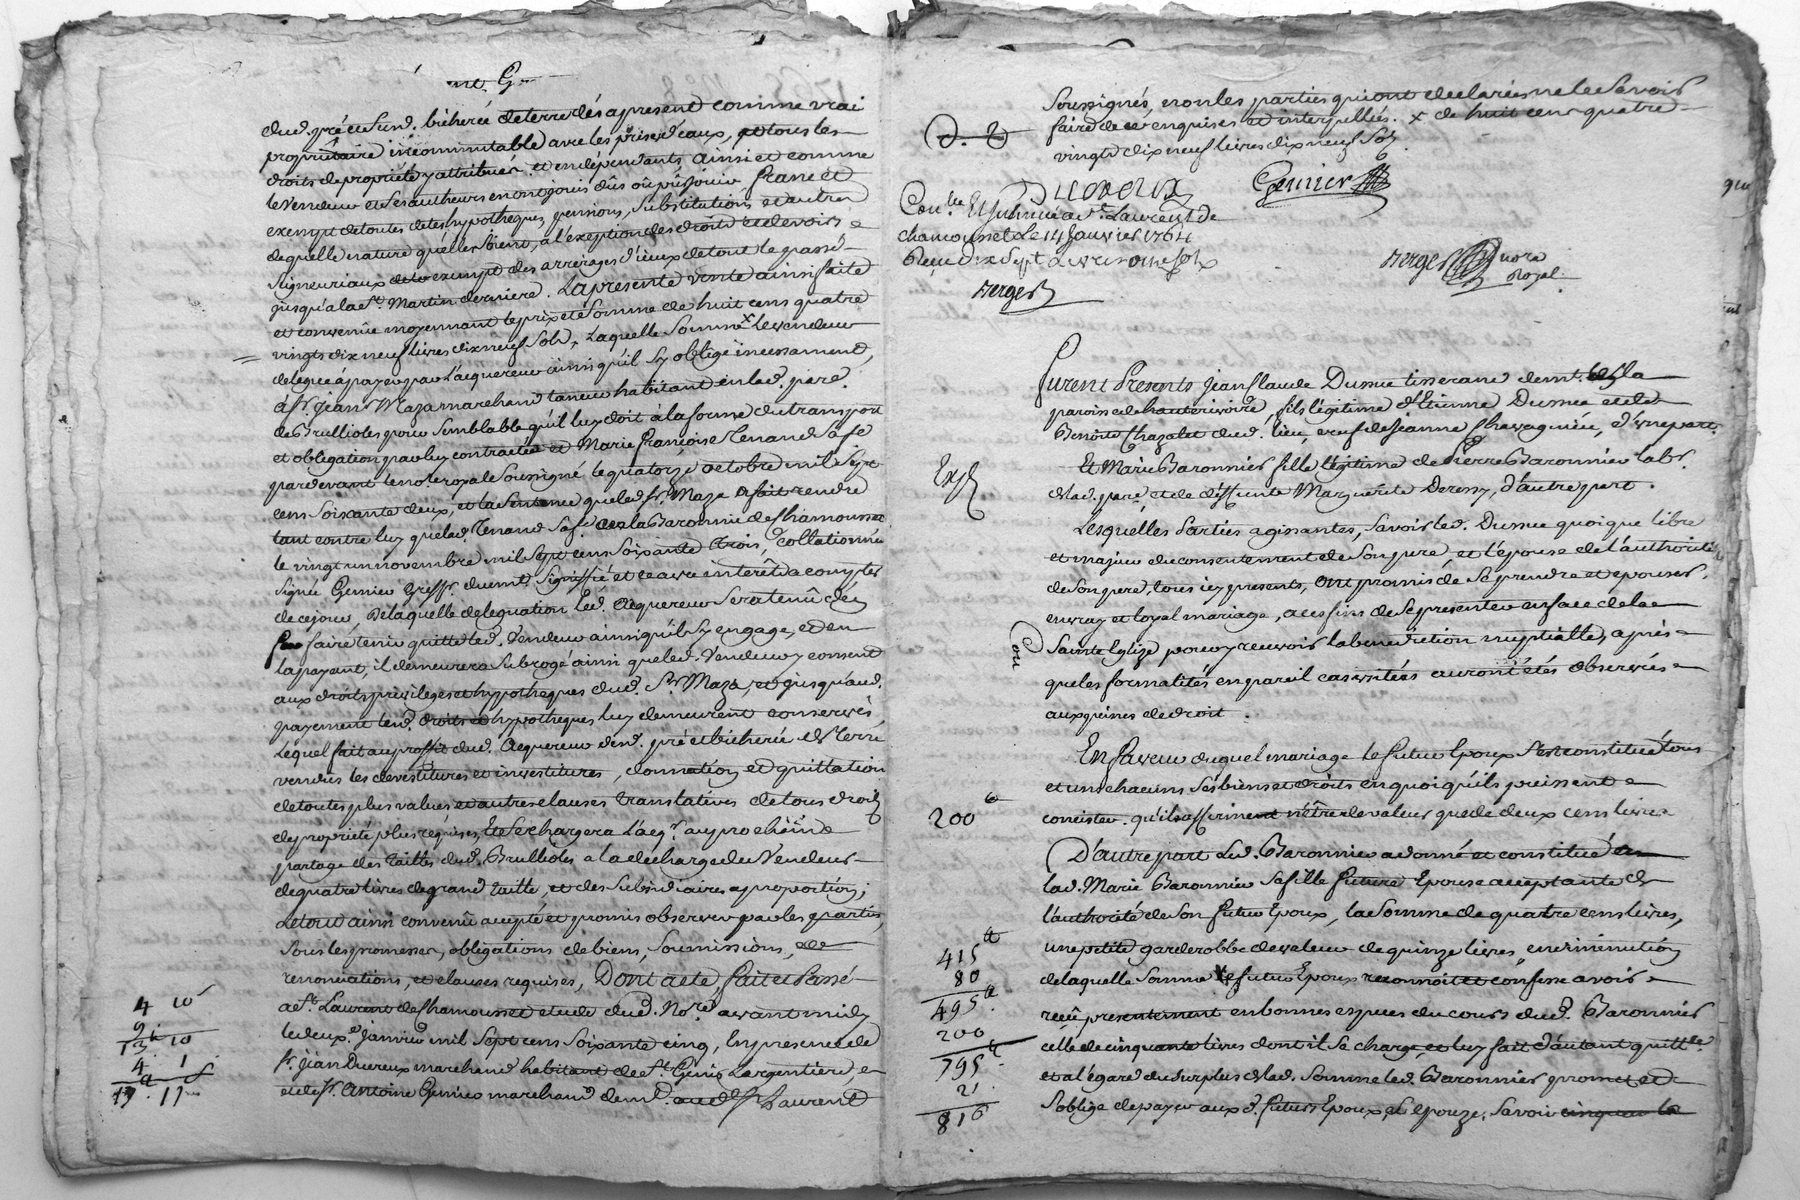 dud. pré et susd. bicherée de terre dés apresent comme vrai
propriétaire incommutable avec les prises d'eaux, et tous les
droits de propriété y attribués et en dépendants, ainsi et comme
le vendeur et ses autheurs en ont joui dûs ou pû jouir franc et
exempt de toutes dettes hypotheques, pensions, substitutions et autres
de quelle nature qu'elles soient, a l'exeption des droits et devoirs
seigneuriaux exempt des arrérages d'iceux de tout le passé
jusqu'à la St. Martin derniere. La presente vente ainsi faite
et convenüe moyennant le prix et somme de huit cens quatre
vingts dix neuf livres dix neuf sols, laquelle somme x le vendeur
delegue à payer par l'acquereur ainsi qu'il s'y oblige incessament,
à Sr. jean Maza marchand taneur habitant en lad. paroe.
de Brullioles pour semblable qu'il luy doit a la forme du transport
et obligation par luy contractée et Marie françoise Renand sa fe
pardevant le notre royal soussigné le quatorze octobre mil sept
cens soixante deux, et la sentence que led. Sr. Maza a fait rendre
tant contre luy que lad. Renand sa fe en la Baronnie de Chamousset
le vingt un novembre mil sept cens soixante trois, collationnée
signée Genier Greff. duemt. signiffié et ce avec interêt a compter
de ce jour, De laquelle delequation led. acquereur sera tenû de
faire tenir quitte led. Vendeur ainsi qu'il s'y engage, et en
la payant, il demeurera subrogé ainsi que led. Vendeur y consent
aux droits privileges et hypotheques dud. Sr. Maza, et jusqu'aud.
payement lesd. droits et hypotheques luy demeurent conservés,
Lequel fait au proffit dud. acquereur desd. pré et bicherée de Terre
vendus les devestitures et investitures, donnation et quittation
de toutes plus values et autres clauses translatives de tous droits
de propriété plus requises, Et se chargera l'acqr. au prochain
partage des Tailles dud. Brullioles a la decharge du Vendeur
de quatre livres de grand taille, et des subsidiaires a proportion;
Le tout ainsi convenû accepté et promis observer par les parties,
sous les promesses, obligations de biens, soumissions, de
renonciations, et clauses requises, Dont acte fait et Passé
a St. Laurent de Chamousset etude dud. Nore. avant midy
le deux.e janvier mil sept cens soixante cinq, En presence de
Sr. jean Ducreux marchand habitant de St. Genis Largentiere, et
et de Sr. Antoine Genier marchand demt. aud. St. Laurent
4 10
9
13 10
4 1
soussignés, non les parties qui ont declarées ne le savoir
faire de ce enquises et interpellées. x de huit cens quatre
vingts dix neuf livres dix neuf sols
Genier
chamousset Le 14 Janvier 1764
Berger
Berger
Royal
Furent Presents jean Claude Dussuc tisserand demt.
paroisse de hauterivoire, fils légitime d'Etienne Dussuc et de
Benoite Chazalet dud. lieu, veuf de Jeanne Chavagnieu, d'une part.
Et Marie Baronnier fille légitime de Pierre Baronnier labr.
dlad. paroe. et de deffunte Marguerite Deressy, d'autre part.
Lesquelles Parties agissantes, savoir led. Dussuc quoique libre
et majeur du consentement de son pere, et l'epouse de l'authorité
de son pere, tous icy presents, ont promis de se prendre et epouser
en vray et loyal mariage, a ces fins de se presenter en face de la
Sainte Eglize pour y recevoir la benediction nuptialle, aprés
que les formalités en pareil cas usitées auront étés observées
aux peines de droit.
En faveur duquel mariage le futur Epoux s'est constitué tous
et un chacuns ses biens et droits en quoi qu'ils puissent
concister. qu'ils afferment n'être de valeur que de deux cens livres
200
D'autre part Led. Baronnier a donné et constitué
lad. Marie Baronnier sa fille future Epouse acceptante de
l'authorité de son futur Epoux, la somme de quatre cens livres,
une petite garderobbe de valeur de quinze livres, en diminution
de laquelle somme le futur Epoux reconnoit et confesse avoir
reçû presentement en bonnes especes du cours dud. Baronnier
celle de cinquante livres dont il se charge, et luy fait d'autant quitt.ce
et a l'égard du surplus dlad. somme led. Baronnier promet et
s'oblige de payer aux d. futurs Epoux et Epouze, savoir
415
80
495
200
795
21
816